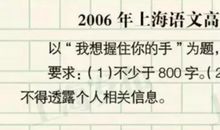 2006 年上海语文高
以“我想握住你的手”为题，
要求：(1)不少于 800 字。(2
不得透露个人相关信息。